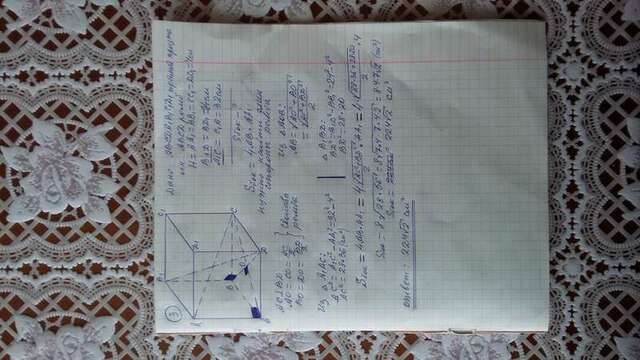 3
Дано: ABCDA₁B₁C₁D₁ прямая призма
ABCD ромб
H = AA₁ = BB₁ = CC₁ = DD₁ = 4см
B₁D = BD₁ = 24см
A₁C = C₁A = 32см
Sбок - ?
Sбок = 4AB·AA₁
нужно найти длину
стороны ромба
AC⊥BD
AO = CO = AC/2
BO = DO = BD/2
Свойства
ромба
Из △AOB:
AB = √(AO²+BO²)
= √(AC²+BD²)/2
Из △A₁AC:
AC² = A₁C²-AA₁² = 32²-4²
AC² = 28·36 (см²)
△B₁BD:
BD² = B₁D²-BB₁² = 24²-4²
BD² = 28·20
Sбок = 4AB·AA₁ = 4·√(AC²+BD²)/2·AA₁ = 4·√(28·36+28·20)/2·4
Sбок = 8√(28·56) = 8√(7·4·7·4·2) = 8·4·7√2 (см²)
Sбок = 224√2 см²
Ответ: 224√2 см²